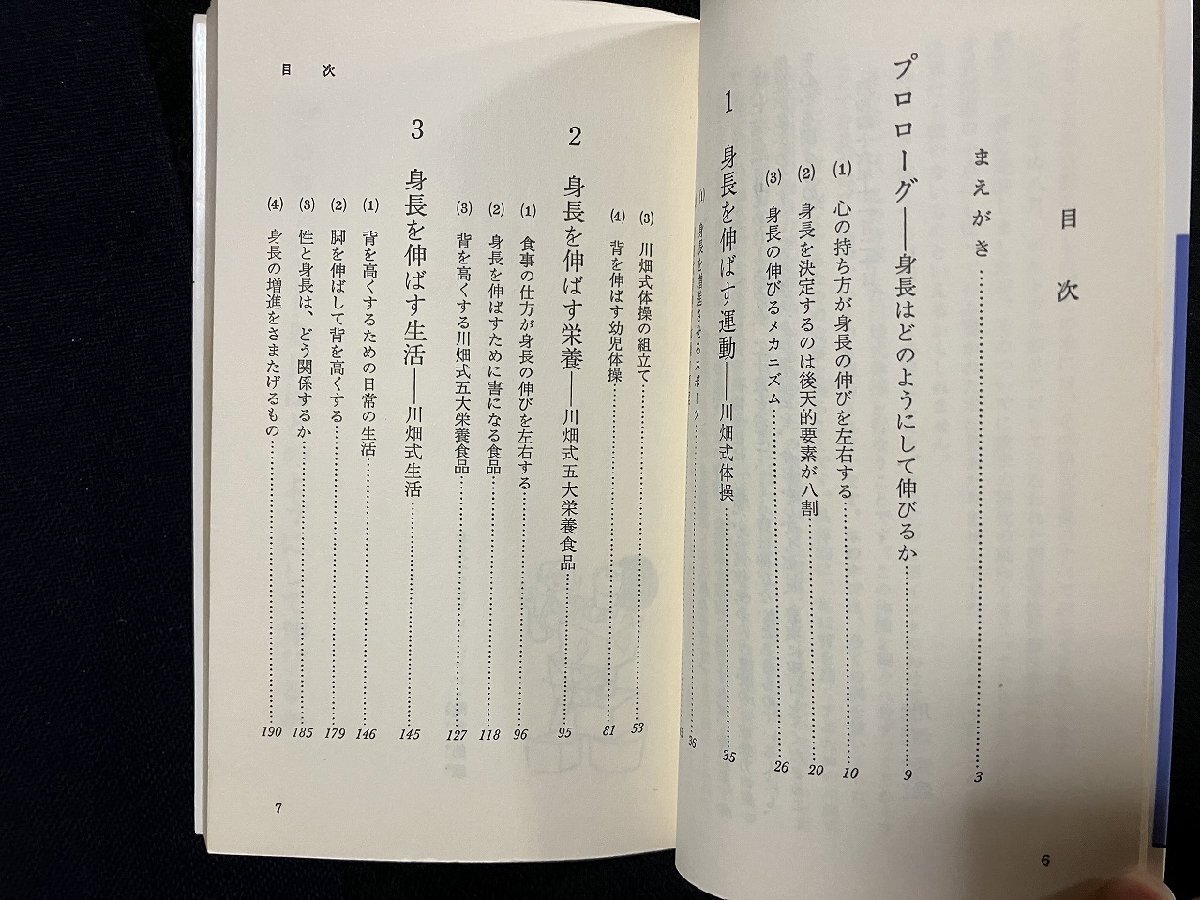 目次
まえがき……3
プロローグ――身長はどのようにして伸びるか……9
(1) 心の持ち方が身長の伸びを左右する……10
(2) 身長を決定するのは後天的要素が八割……20
(3) 身長の伸びるメカニズム……26
1 身長を伸ばす運動――川畑式体操……35
(1) 身長を増進させるスポーツ……36
6
(3) 川畑式体操の組立て……53
(4) 背を伸ばす幼児体操……81
2 身長を伸ばす栄養――川畑式五大栄養食品……95
(1) 食事の仕方が身長の伸びを左右する……96
(2) 身長を伸ばすために害になる食品……118
(3) 背を高くする川畑式五大栄養食品……127
3 身長を伸ばす生活――川畑式生活……145
(1) 背を高くするための日常の生活……146
(2) 脚を伸ばして背を高くする……179
(3) 性と身長は、どう関係するか……185
(4) 身長の増進をさまたげるもの……190
目次
7